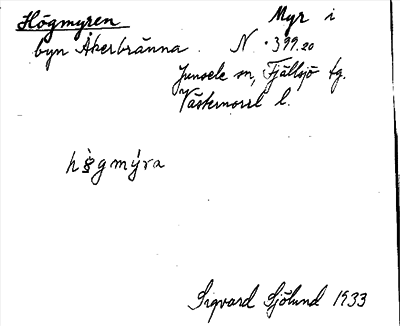 Högmyren Myr i
byn Åkerbränna. N. 399.20
Junsele sn, Fjällsjö tg.
Västernorrl l.
högmýra
Sigvard Sjölund 1933